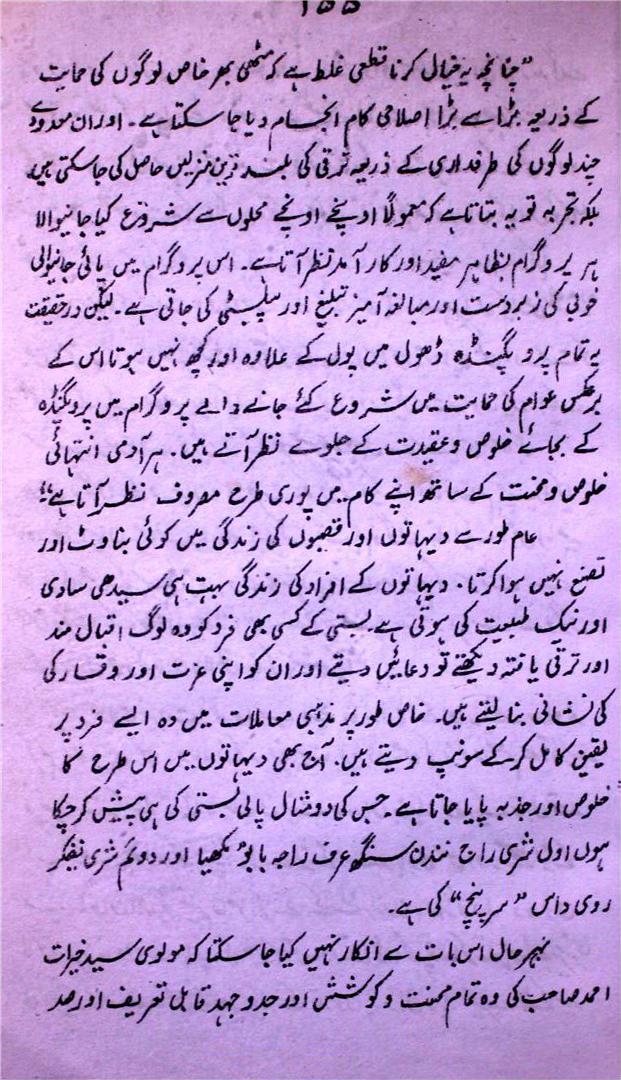 ۱۵۵
”چنانچہ یہ خیال کرنا قطعی غلط ہے کہ مٹھی بھر خاص لوگوں کی حمایت
کے ذریعہ بڑا سے بڑا اصلاحی کام انجام دیا جا سکتا ہے۔ اور ان معدودے
چند لوگوں کی طرفداری کے ذریعہ ترقی کی بلند ترین منزلیں حاصل کی جا سکتی ہیں
بلکہ تجربہ تو یہ بتاتا ہے کہ معمولاً اونچے اونچے محلوں سے شروع کیا جانیوالا
ہر پروگرام بظاہر مفید اور کار آمد نظر آتا ہے۔ اس پروگرام میں پائی جانیوالی
خوبی کی زبردست اور مبالغہ آمیز تبلیغ اور پبلسٹی کی جاتی ہے۔ لیکن درحقیقت
یہ تمام پروپگنڈہ ڈھول میں پول کے علاوہ اور کچھ نہیں ہوتا اس کے
برعکس عوام کی حمایت میں شروع کئے جانے والے پروگرام میں پروپگنڈہ
کے بجائے خلوص و عقیدت کے جلوے نظر آتے ہیں۔ ہر آدمی انتہائی
خلوص و محنت کے ساتھ اپنے کام میں پوری طرح مصروف نظر آتا ہے“
عام طور سے دیہاتوں اور قصبوں کی زندگی میں کوئی بناوٹ اور
تصنع نہیں ہوا کرتا۔ دیہاتوں کے افراد کی زندگی بہت ہی سیدھی سادی
اور نیک طبیعت کی ہوتی ہے۔ بستی کے کسی بھی فرد کو وہ لوگ اقبال مند
اور ترقی یافتہ دیکھتے تو دعائیں دیتے اور ان کو اپنی عزت اور وقار کی
کی نشانی بنا لیتے ہیں۔ خاص طور پر مذہبی معاملات میں وہ ایسے فرد پر
یقین کامل کر کے سونپ دیتے ہیں۔ آج بھی دیہاتوں میں اس طرح کا
خلوص اور جذبہ پایا جاتا ہے۔ جس کی دو مثال پالی بستی کی ہی پیش کر چکا
ہوں اول شری راج نندن سنگھ عرف راجہ بابو مکھیا اور دوئم شری
روی داس ”سر پنچ“ کی ہے۔
بہر حال اس بات سے انکار نہیں کیا جا سکتا کہ مولوی سید خیرات
احمد صاحب کی وہ تمام محنت و کوشش اور جدوجہد قابل تعریف اور صد